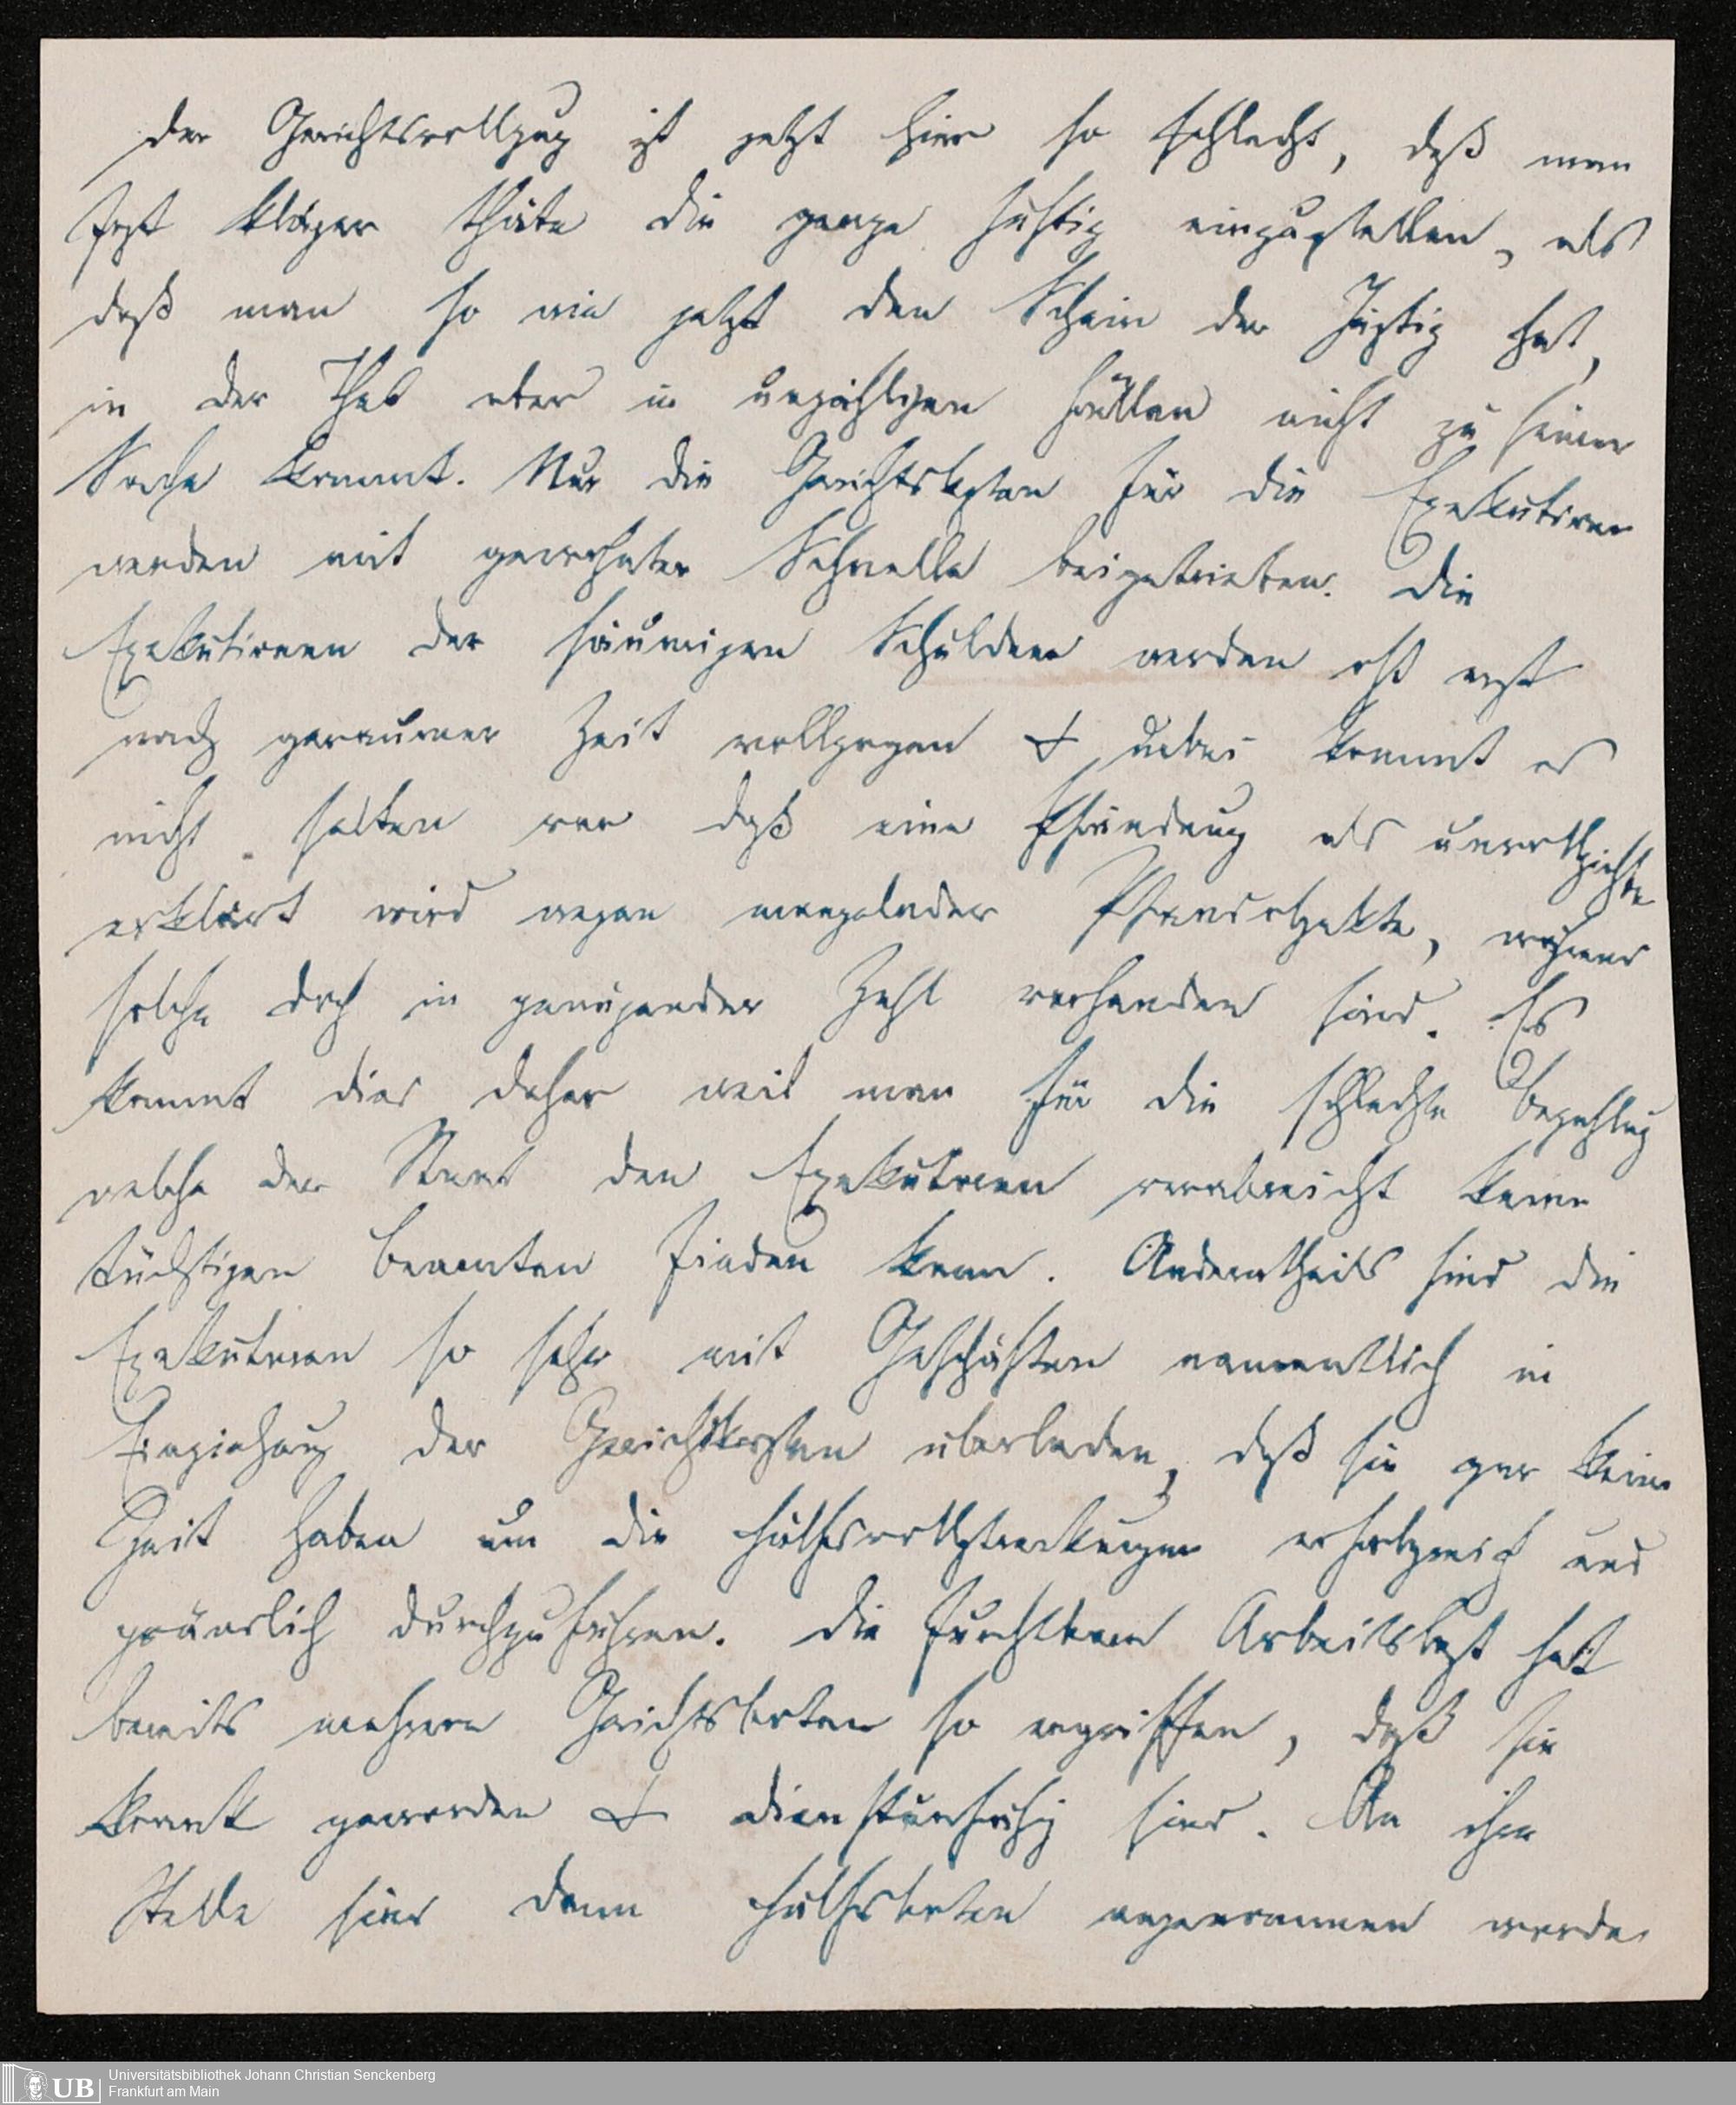 Der Gerichtsvollzug ist jetzt hier so schlecht, daß man
fast klüger thäte die ganze Justiz einzustellen, als
daß man so wie jetzt den Schein der Justiz hat,
in der That aber in unzähligen Fällen nicht zu seiner
Sache kommt. Nur die Gerichtskosten für die Exekutoren
werden mit gewohnter Schnelle beigetrieben. Die
Exekutionen der säumigen Schuldner werden oft erst
nach geraumer Zeit vollzogen & dabei kommt es
nicht selten vor daß eine Pfändung als unvollziehbar
erklärt wird wegen mangelnder Pfandobjekte, während
solche doch in genügender Zahl vorhanden sind. Es
kommt dies daher weil man für die schlechte Bezahlung
welche der Staat den Exekutoren verabreicht keine
tüchtigen Beamten finden kann. Anderntheils sind die
Exekutoren so sehr mit Geschäften namentlich in
Einziehung der Gerichtskosten überladen, daß sie gar keine
Zeit haben um die Hülfsvollstreckungen erfolgreich und
gründlich durchzuführen. Die furchtbare Arbeitslast hat
bereits mehrere Gerichtsboten so ergriffen, daß sie
krank geworden & dienstunfähig sind. An ihre
Stelle sind dann Hülfsboten angenommen worden
UB
Universitätsbibliothek Johann Christian Senckenberg
Frankfurt am Main